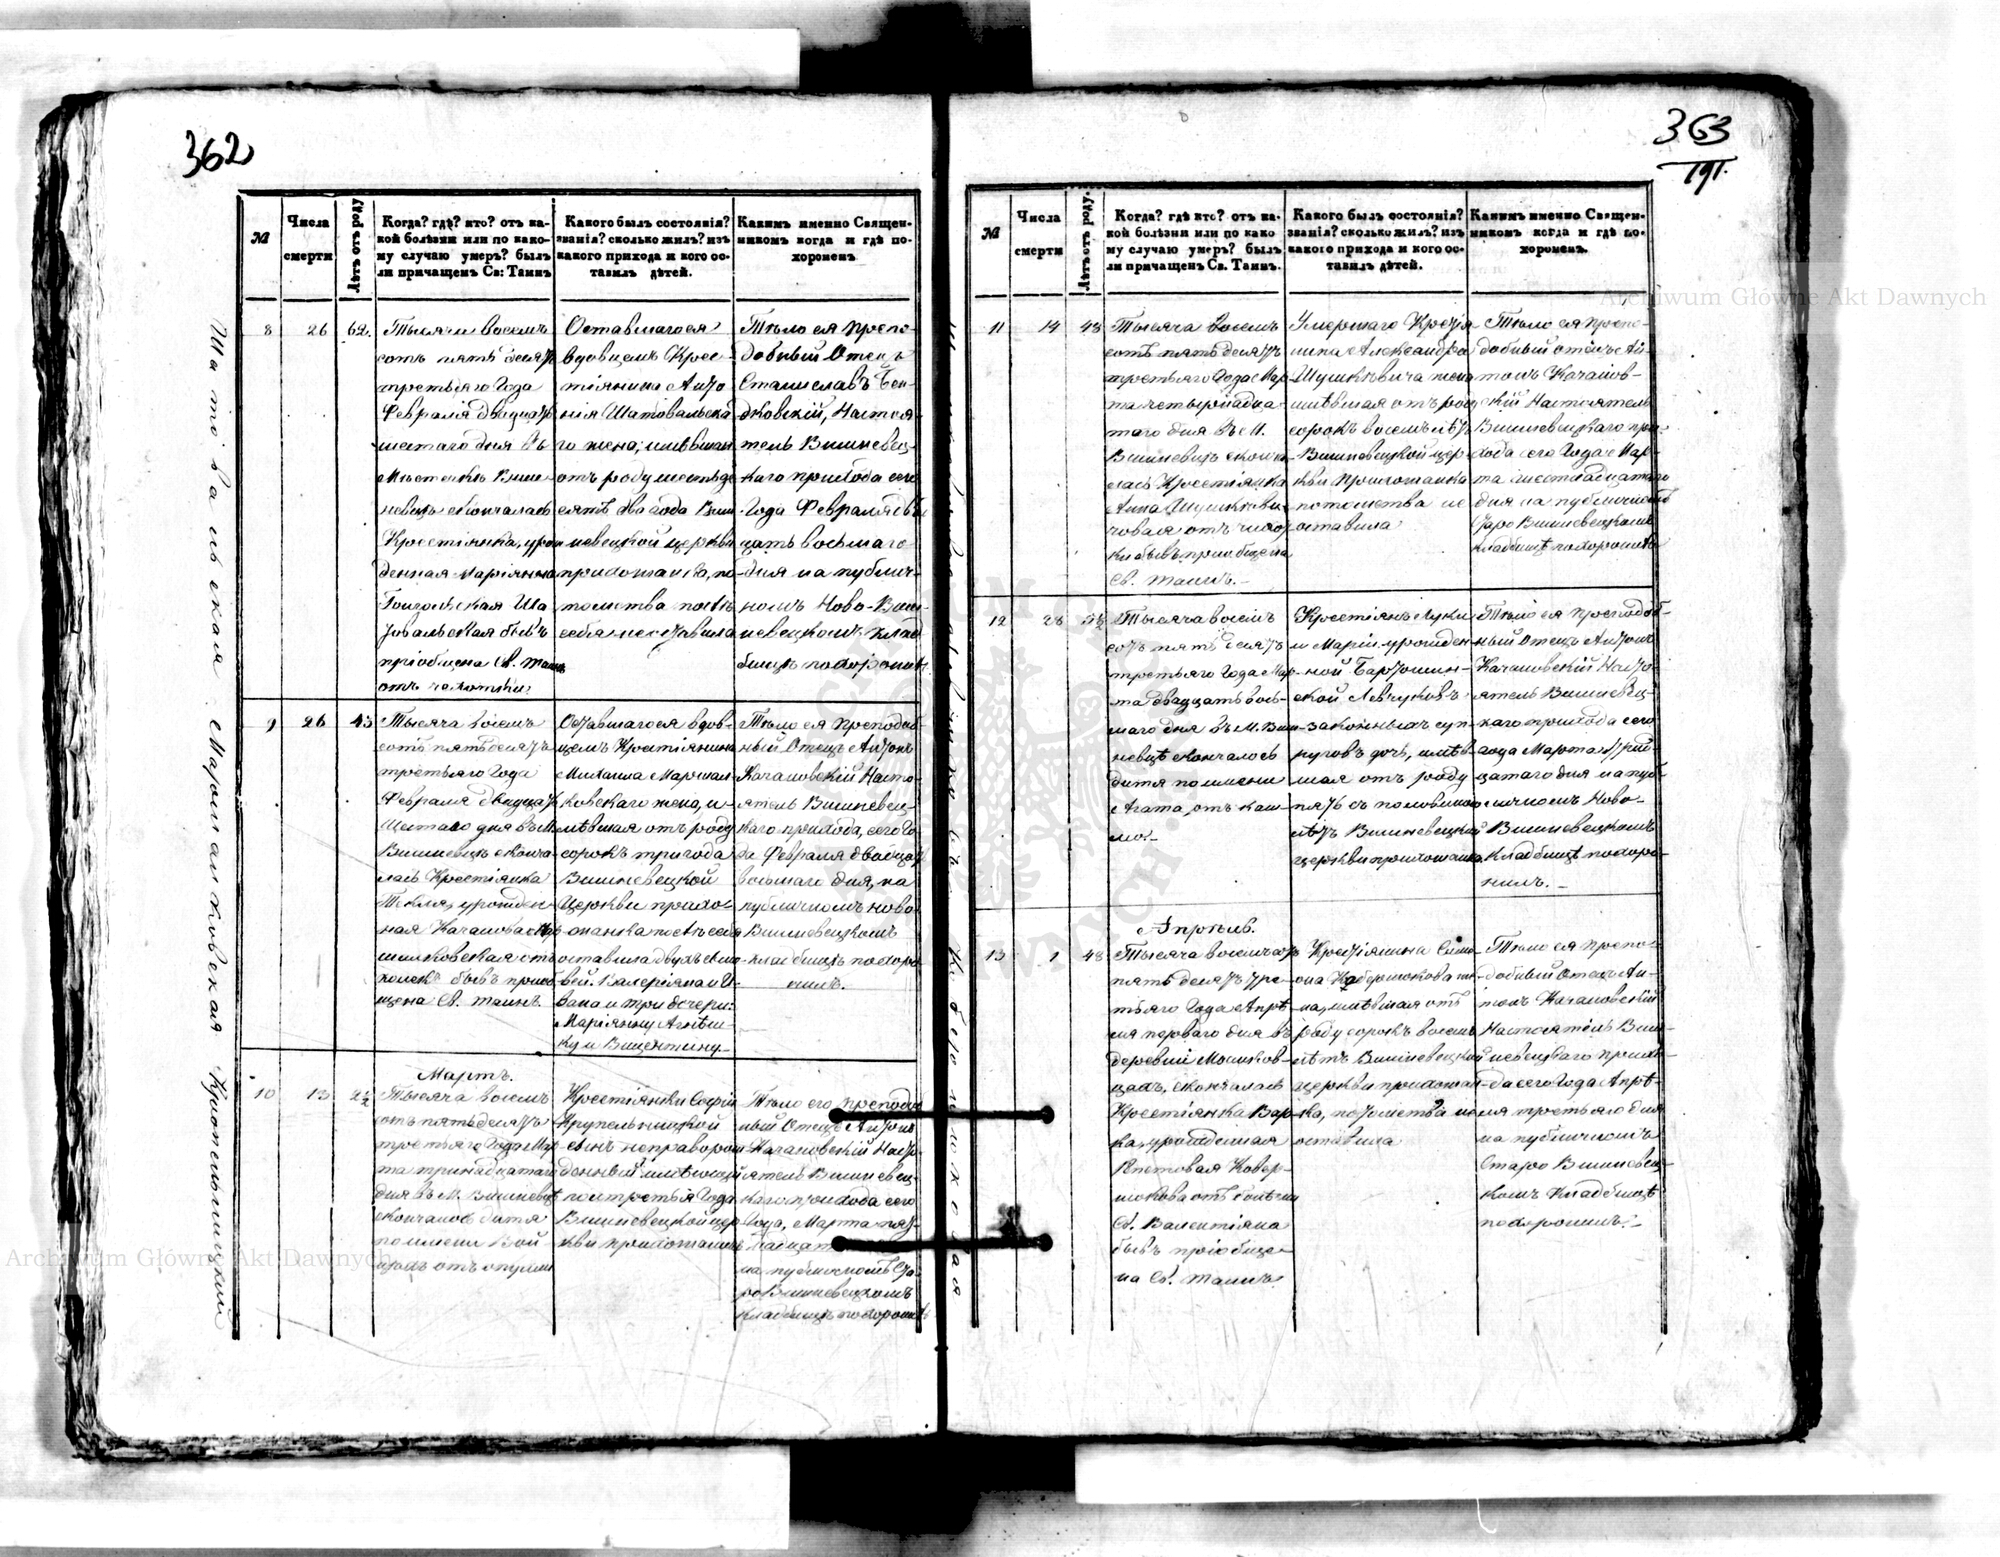 362
№
Числа
смерти
Лѣтъ отъ роду
Когда? гдѣ? кто? отъ ка-
кой болѣзни или по како-
му случаю умеръ? былъ
ли причащенъ Св: Таинъ
Какого былъ состоянія?
званія? сколько жилъ? изъ
какого прихода и кого ос-
тавилъ дѣтей.
Какимъ именно Священ-
никомъ когда и гдѣ по-
хороненъ
8
26
62.
Тысяча восемь
сотъ пять десятъ
третьяго Года
Февраля двадцать
шестаго дня въ
Мѣстечкѣ Више-
невцѣ скончалась
Крестіянка, урож
денная Маріянна
Шa
быв
пріобщена Св. Таинъ
отъ чахотки
Оставшагося
вдовцемъ Крес-
тіянина Анто
нія Шатовальска
го жена, имѣвшая
отъ роду шестьде
сятъ два года Виш
невецкой церкви
прихожанка, по-
томства послѣ
себя не оставила
Тѣло ея Препо-
добный Отецъ
Станиславъ
Настоя-
тель Вишневец-
каго прихода сего
Года Февраля два
цать восьмаго
дня на публич-
номъ Ново-Виш-
невецкомъ клад
бищѣ похоронилъ
9
26
43
Тысяча восемь
сотъ пятьдесятъ
третьяго Года
Февраля двадцать
Шестаго дня въ М.
Вишневцѣ сконча-
лась Крестіянка
Текля, урожден-
ная Качановска Мар
шалковская отъ
быв приоб
щена Св. Таинъ
Оставшагося вдов-
цемъ Крестіянина
Михаила Маршал-
ковскаго жена, и-
мѣвшая отъ роду
сорокъ три года
Вишневецкой
Церкви прихо-
жанка послѣ себя
оставила двухъ сыно
вей. Валеріяна и И-
вана и три дочери:
Маріянну Агнѣш-
ку и Викентину
Тѣло ея Преподоб-
ный Отецъ Антонъ
Качановскій Насто-
ятель Вишневец-
каго прихода, сего Го-
да Февраля двадцать
восьмаго дня, на
публичномъ ново-
Вишневецкомъ
кладбищѣ похоро-
нилъ.
Мартъ.
10
13
2½
Тысяча восемь
сотъ пятьдесятъ
третьяго Года Мар
та тринадцатаго
дня въ М. Вишневцѣ
скончалось дитя
по имени Вой-
цехъ отъ опухли
Крестіянки Софіи
Крупельницкой
сынъ неправорож
денный имѣющій
полтретья Года
Вишневецкой цер
кви прихожанинъ
Тѣло его преподоб
ный Отецъ Антонъ
Качановскій Наст
ятель Вишневец-
каго прихода сего
Года, Марта пят-
надцат
на публичномъ Ста
роВишневецкомъ
кладбищѣ похоронилъ
Шатовальская Маршалковская Крупельницкий
363
191.
№
Числа
смерти
Лѣтъ отъ роду.
Когда? гдѣ кто? отъ ка-
кой болѣзни или по како
му случаю умеръ? былъ
ли причащенъ Св. Таинъ.
Какого былъ состоянія?
званія? сколько жилъ? изъ
какого прихода и кого ос-
тавилъ дѣтей.
Какимъ именно Священ-
никомъ когда и гдѣ по-
хороненъ.
11
14
48
Тысяча восемь
сотъ пять десятъ
третьяго Года Мар
та четырнадца
таго дня въ М.
Вишневцѣ сконча
лась Крестіянка
Анна Шушкеви-
човая отъ
бывъ приобщена
Св. Таинъ.
Умершаго Крестія
нина Александра
Шушкѣвича жена
имѣвшая отъ роду
сорокъ восемь лѣтъ
Вишневецкой цер
кви Прихожанка
потомства не
оставила
Тѣло ея Препо-
добный отецъ Ан-
тонъ Качанов-
скій Настоятель
Вишневецкаго при-
хода сего Года Мар-
та шестнадцатаго
дня на публичномъ
Старо Вишневецкомъ
кладбищѣ похоронилъ
12
28
5½
Тысяча восемь
сотъ пять десятъ
третьяго Года Мар
та двадцать вось-
маго дня въ М. Виш
невцѣ скончалось
дитя по имени
Агата, отъ каш-
ля.
Крестіянъ Луки
и Маріи урожден-
ной Бартошин-
ской Левчуковъ
законныхъ суп-
руговъ дочь, имѣв
шая отъ роду
пять съ половиною
лѣтъ Вишневецкой
церкви прихожанка
Тѣло ея преподоб-
ный Отецъ Антонъ
Качановскій Насто-
ятель Вишневец-
каго прихода сего
года Марта трид-
цатаго дня на пуб-
личномъ Ново-
Вишневецкомъ
Кладбищѣ похоро-
нилъ.
Апрѣль.
13
1
48
Тысяча восемь сотъ
пять десятъ тре-
тьяго Года Апрѣ
ля перваго дня въ
деревни Мошков-
цахъ, скончалась
Крестіянка Вар-
ка, урожденная
отъ болѣзни
Св. Валентіяна
бывъ пріобще-
на Св. Таинъ
Крестіянина Сим-
она же-
на, имѣвшая отъ
роду сорокъ восемь
лѣтъ Вишневецкой
церкви прихожан-
ка, потомства не
оставила
Тѣло ея препо-
добный Отецъ Ан-
тонъ Качановскій
Настоятель Виш
невецкаго прихо-
да сего Года Апрѣ-
ля третьяго дня
на публичномъ
Старо Вишневец-
комъ Кладбищѣ
похоронилъ.
Archiwum Główne Akt Dawnych
Archiwum Główne Akt Dawnych